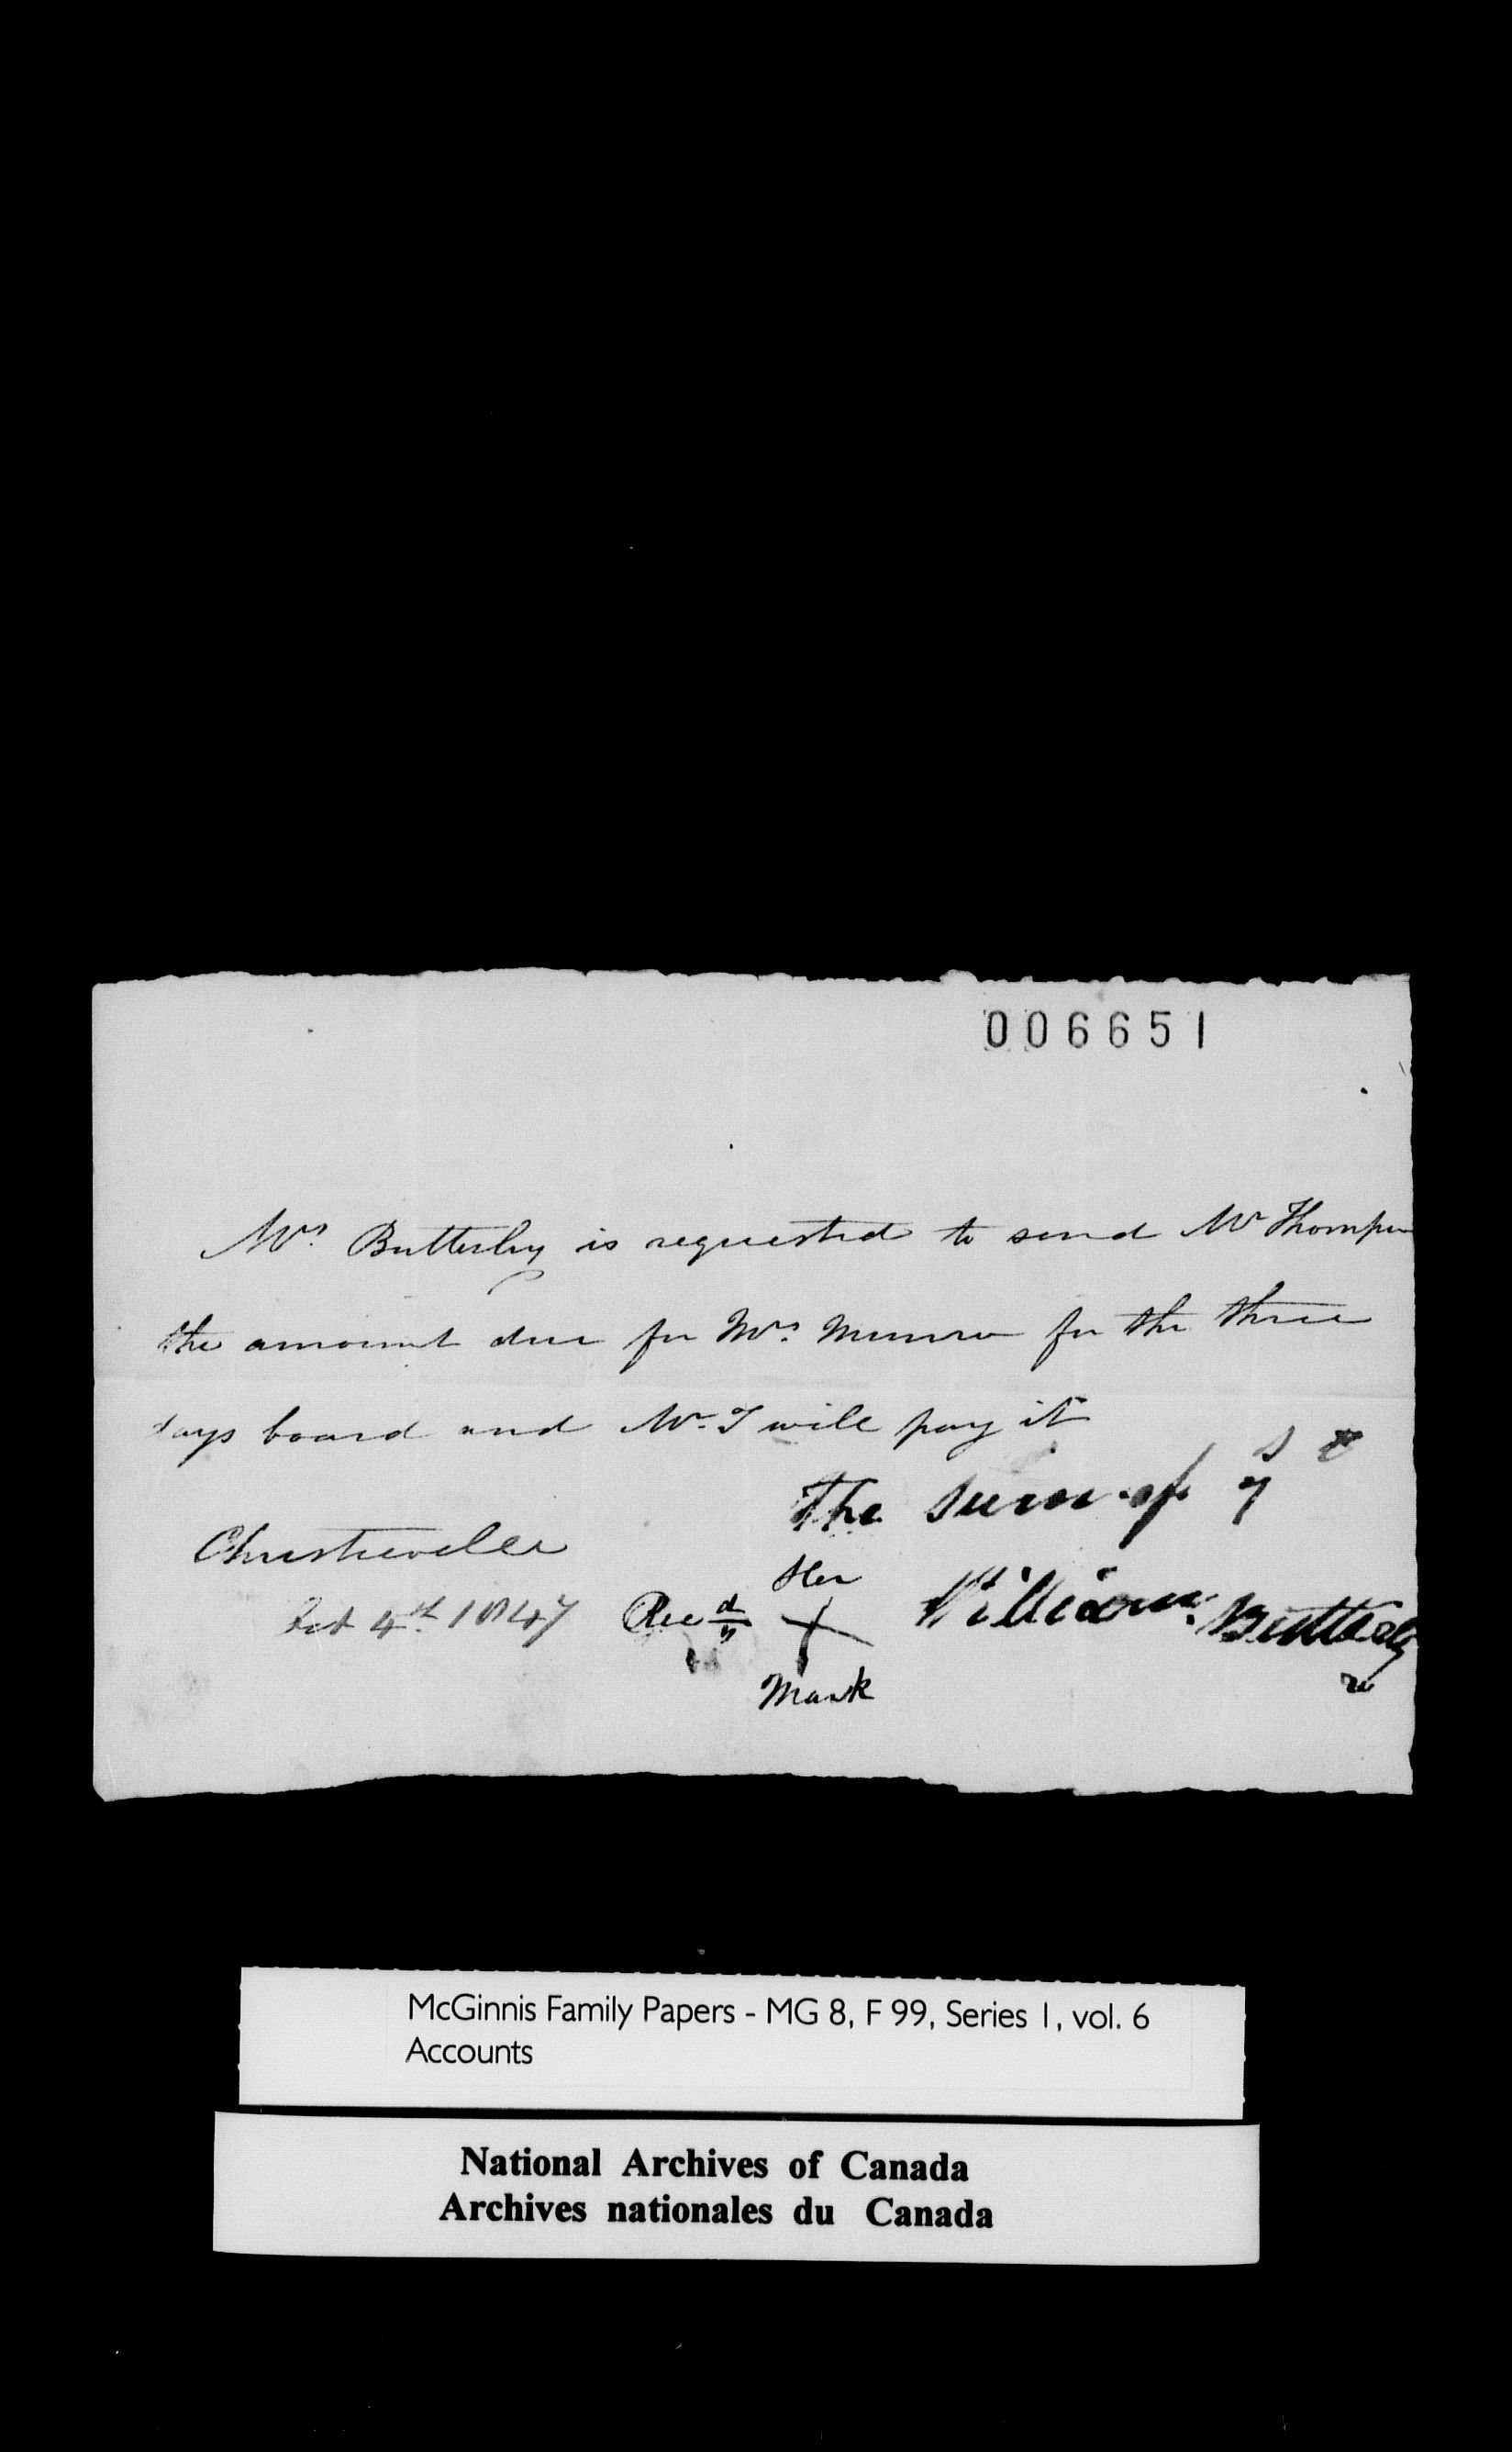 006651
Mrs. Butterley is requested to send Mr Thompson
the amount due for Mrs. Munro for the three
days board and Mr. T will pay it
The sum of 7 s
Christieville
Oct 4th 1847 Recd Her X Mark William Butterly
McGinnis Family Papers - MG 8, F 99, Series 1, vol. 6
Accounts
National Archives of Canada
Archives nationales du Canada